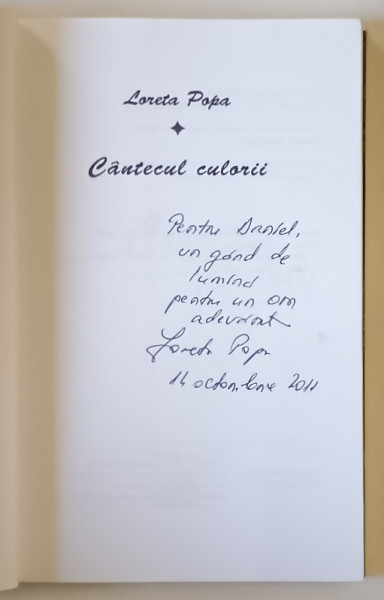 Loreta Popa
Cântecul culorii
Pentru Daniel,
un gând de
lumină
pentru un om
adevărat
Loreta Popa
14 octombrie 2011